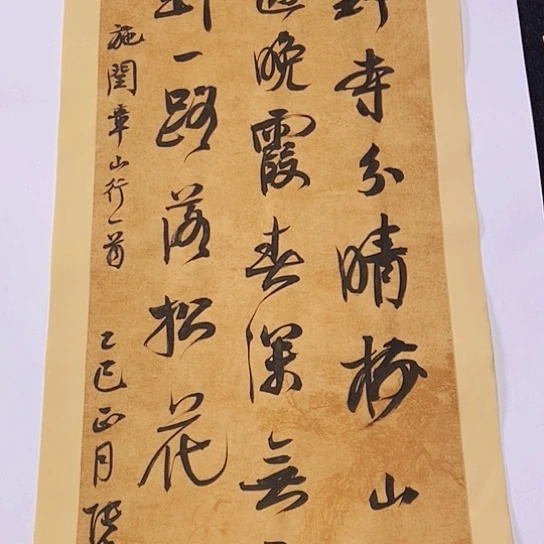 野寺分晴樹山
過晚霞春深無
到一路落松花
施閏章山行一首
乙巳正月